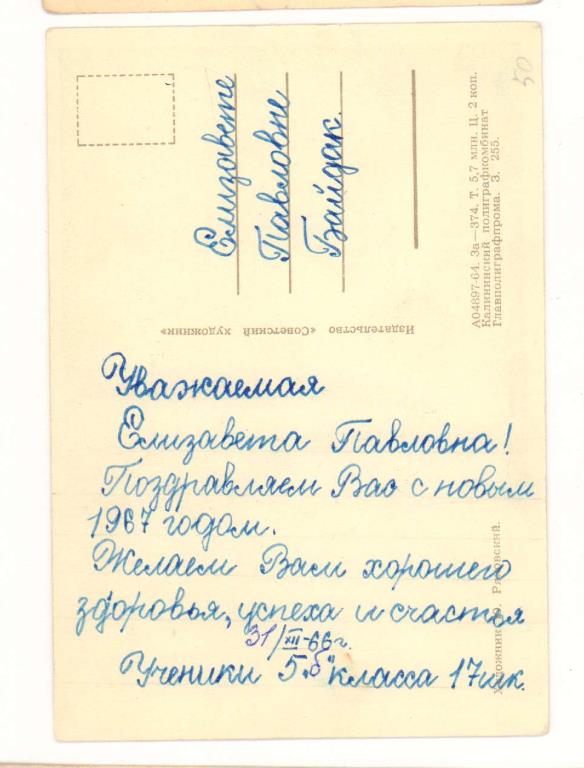 Елизавете
Павловне
Байдак.
А04897-64. За—374. Т. 5,7 млн. Ц. 2 коп.
Калининский полиграфкомбинат
Главполиграфпрома. З. 255.
50
Издательство «Советский художник»
Уважаемая
Елизавета Павловна!
Поздравляем Вас с новым
1967 годом.
Желаем Вам хорошего
здоровья, успеха и счастья
31/XII-66 г.
Ученики 5 „б" класса 17 шк.
Художник Ю.